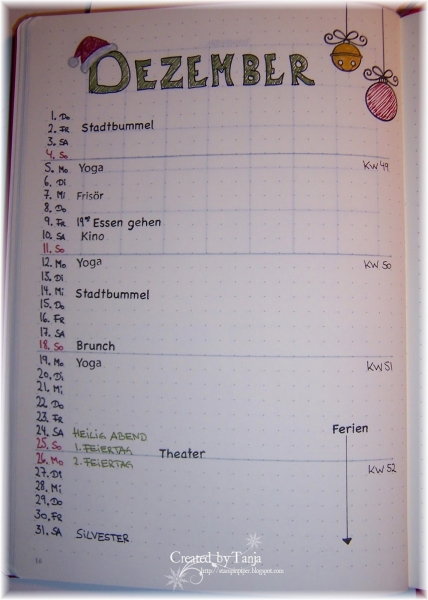 DEZEMBER
1. Do
2. FR Stadtbummel
3. SA
4. So
5. Mo Yoga KW 49
6. Di
7. Mi Frisör
8. Do
9. FR 19⁰⁰ Essen gehen
10. SA Kino
11. So
12. Mo Yoga KW 50
13. Di
14. Mi Stadtbummel
15. Do
16. FR
17. SA
18. So Brunch
19. Mo Yoga KW 51
20. Di
21. Mi
22. Do
23. FR
24. SA HEILIG ABEND Ferien
25. So 1. FEIERTAG Theater
26. Mo 2. FEIERTAG KW 52
27. Di
28. Mi
29. Do
30. FR
31. SA SILVESTER
Created by Tanja